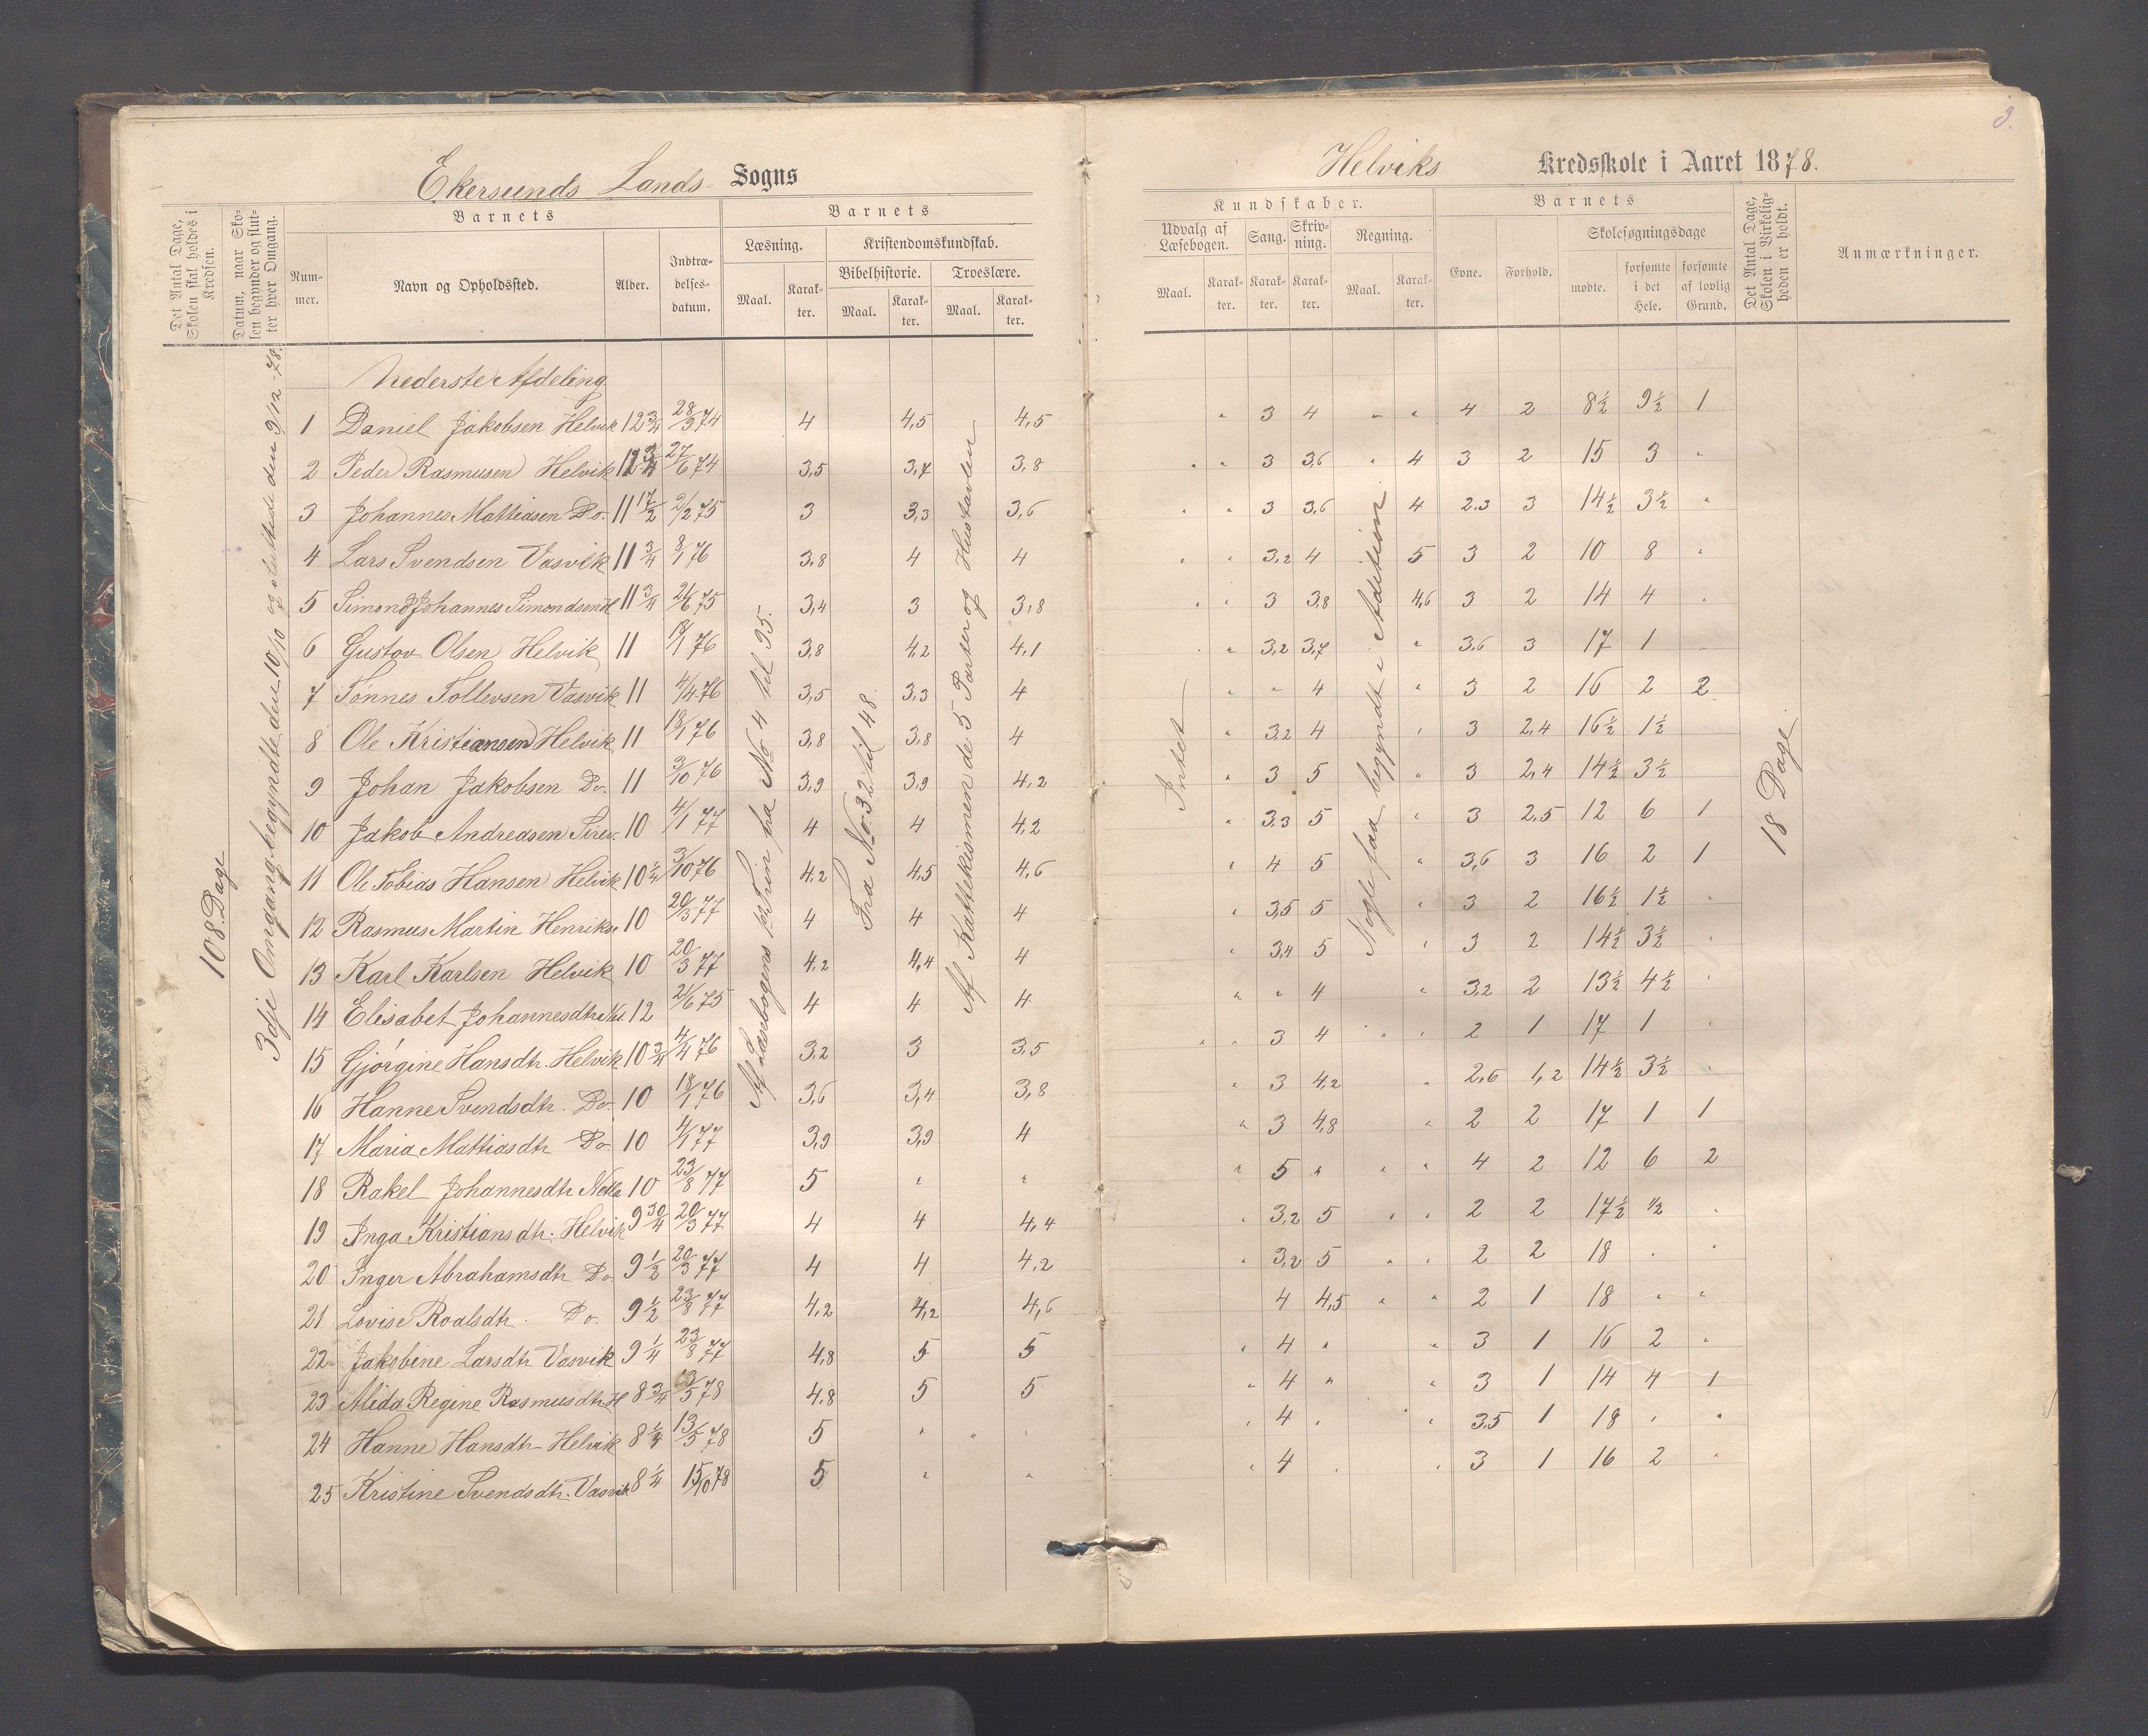 3.
Ekersunds Lands Sogns
Helviks Kredsskole i Aaret 1878.
Det Antal Dage, Skolen skal holdes i Kredsen.
Datum, naar Skolen begynder og slutter hver Omgang.
Barnets
Nummer.
Navn og Opholdssted.
Alder.
Indtrædelsesdatum.
Barnets
Læsning.
Maal.
Karakter.
Kristendomskundskab.
Bibelhistorie.
Maal.
Karakter.
Troeslære.
Maal.
Karakter.
Kundskaber.
Udvalg af Læsebogen.
Maal.
Karakter.
Sang.
Karakter.
Skrivning.
Karakter.
Regning.
Maal.
Karakter.
Barnets
Evne.
Forhold.
Skolesøgningsdage
mødte.
forsømte i det Hele.
forsømte af lovlig Grund.
Det Antal Dage, Skolen i Virkeligheden er holdt.
Anmærkninger.
108 Dage
3dje Omgang begyndte den 10/10 og sluttede den 9/12-78.
Af Læsebogens 1ste Trin fra No 4 til 95.
Fra No. 32 til 48.
Af Kattekismen de 5 Parter og Hustavlen
Intet
Nogle faa begyndt i Addition
18 Dage
Nederste Afdeling
1 Daniel Jakobsen Helvik 12 3/4 28/9 74 4 4,5 4,5 " 3 4 " " 4 2 8½ 9½ 1
2 Peder Rasmusen Helvik 12 3/4 27/6 74 3,5 3,7 3,8 " " 3 3,6 " 4 3 2 15 3 "
3 Johannes Mattiasen Do. 11 1/2 2/2 75 3 3,3 3,6 " " 3 3,6 4 2.3 3 14½ 3½ "
4 Lars Svendsen Vasvik 11 3/4 8/1 76 3,8 4 4 " " 3,2 4 5 3 2 10 8 "
5 Simon Johannes Simondsen H 11 3/4 21/6 75 3,4 3 3,8 " " 3 3,8 4,6 3 2 14 4 "
6 Gustav Olsen Helvik 11 18/1 76 3,8 4,2 4,1 " " 3,2 3,7 " 3,6 3 17 1
7 Tønnes Tollevsen Vasvik 11 4/4 76 3,5 3,3 4 " " 4 " 3 2 16 2 2
8 Ole Kristiansen Helvik 11 18/1 76 3,8 3,8 4 " 3,2 4 " 3 2,4 16½ 1½
9 Johan Jakobsen Do. 11 3/10 76 3,9 3,9 4,2 " 3 5 " 3 2,4 14½ 3½
10 Jakob Andreasen Sirev. 10 4/1 77 4 4 4,2 " 3,3 5 " 3 2,5 12 6 1
11 Ole Tobias Hansen Helvik 10 ¼ 3/10 76 4,2 4,5 4,6 " 4 5 " 3,6 3 16 2 1
12 Rasmus Martin Henrikse 10 20/3 77 4 4 4 " 3,5 5 " 3 2 16½ 1½ "
13 Karl Karlsen Helvik 10 20/3 77 4,2 4,4 4 " 3,4 5 " 3 2 14½ 3½ "
14 Elisabet Johannesdtr 12 21/6 75 4 4 4 " " 4 " 3,2 2 13½ 4½ "
15 Gjørgine Hansdtr. Helvik 10 3/4 4/4 76 3,2 3 3,5 " " 3 4 " " 2 1 17 1 "
16 Hanne Svendsdtr. Do. 10 18/1 76 3,6 3,4 3,8 " 3 4,2 " 2,6 1,2 14½ 3½ "
17 Maria Mattiasdtr Do. 10 4/1 77 3,9 3,9 4 " 3 4,8 " 2 2 17 1 1
18 Rakel Johannesdtr 10 23/8 77 5 " " " 5 " " " 4 2 12 6 2
19 Inga Kristiansdtr. Helvik 9 3/4 20/3 77 4 4 4,4 " 3,2 5 " " 2 2 17½ ½ "
20 Inger Abrahamsdtr Do. 9 1/2 20/3 77 4 4 4,2 " 3,2 5 " " 2 2 18 " "
21 Lovise Roalsdtr. Do. 9 1/2 23/8 77 4,2 4,2 4,6 4 4,5 " " 2 1 18 " "
22 Jakobine Larsdtr Vasvik 9 1/4 23/8 77 4,8 5 5 " 4 " " 3 1 16 2 "
23 Alida Regine Rasmusdtr. H 8 3/4 13/5 78 4,8 5 5 " 4 " " 3 1 14 4 1
24 Hanne Hansdtr Helvik 8 1/4 13/5 78 5 " " " " 4 " " 3,5 1 18 " "
25 Kristine Svendsdtr. Vasvik 8 1/4 15/10 78 5 " " " 4 " " 3 1 16 2 "